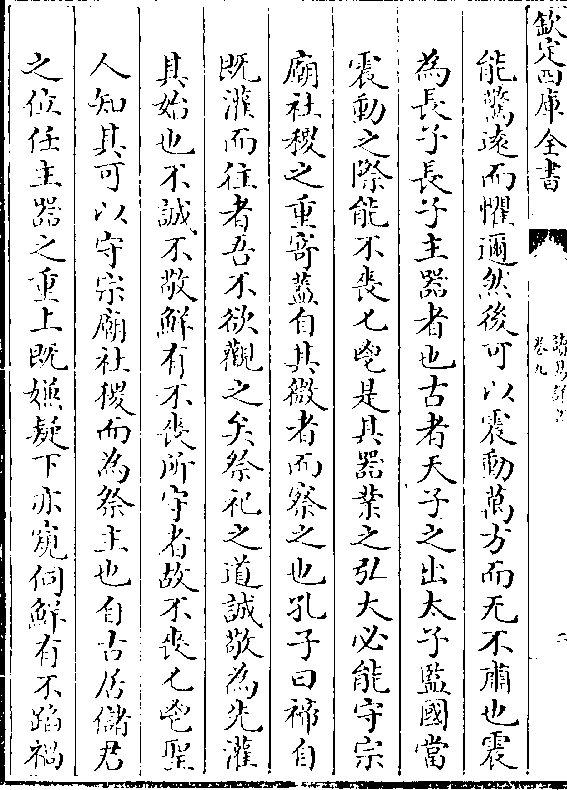 欽定四庫全書
讀易詳說
卷九
能驚逺而懼邇然後可以震動萬方而无不肅也震
為長子長子主器者也古者天子之出太子監國當
震動之際能不喪匕鬯是其器業之弘大必能守宗
廟社稷之重寄蓋自其微者而察之也孔子曰禘自
既灌而往者吾不欲觀之矣祭祀之道誠敬為先灌
其始也不誠不敬鮮有不喪所守者故不喪匕鬯聖
人知其可以守宗廟社稷而為祭主也自古居儲君
之位任主器之重上既嫌疑下亦窺伺鮮有不蹈禍